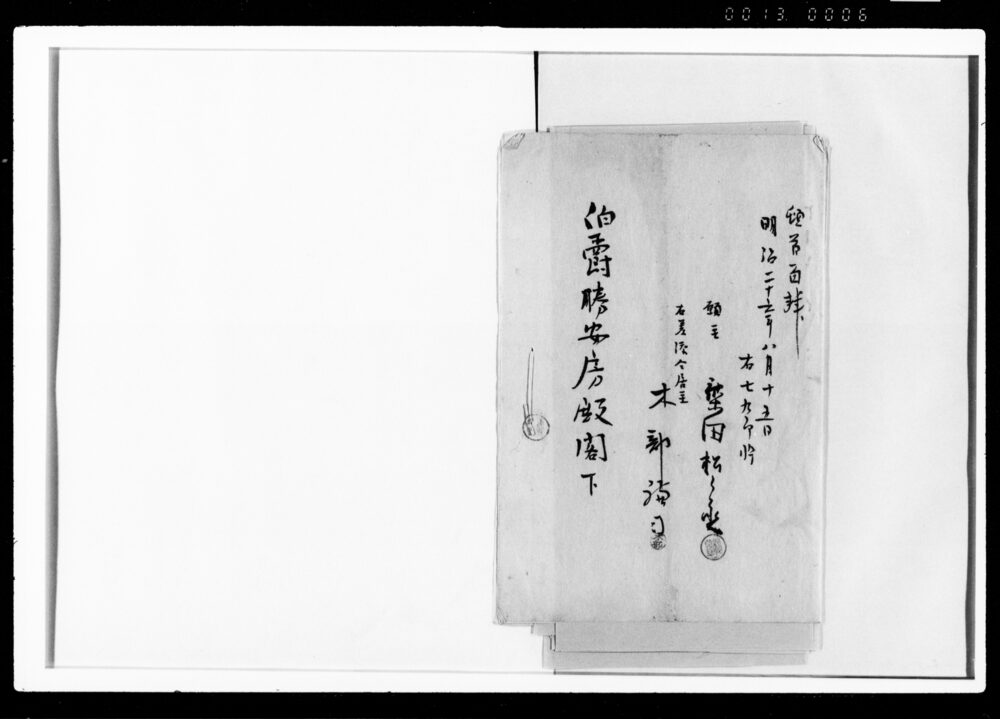 0013 0006
頓首百拝
明治二十五年八月十五日
右七九郎
願主 柴田松之丞
右差添
木部
伯爵勝安房殿閣下